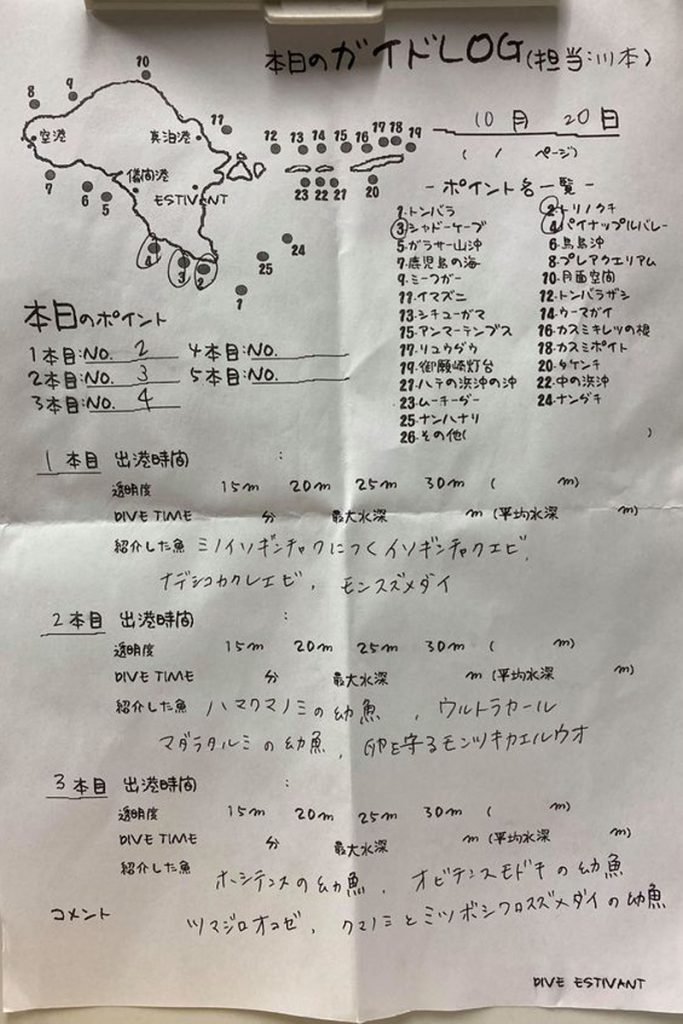 本日のガイドLOG(担当:川本)
10月 20日
( / ページ)
10
8
9
11
空港
真泊港
12
13
14
15
16
17
18
19
7
6
5
儀間港
ESTIVANT
23
22
21
20
24
25
4
3
2
1
-ポイント名一覧-
1.トンバラ
2.トリノクチ
3.シャドーケーブ
4.パイナップルバレー
5.ガラサー山沖
6.鳥島沖
7.鹿児島の海
8.プレアクエリアム
9.ミーフガー
10.月面空間
11.イマズニ
12.トンバラザシ
13.シチューガマ
14.ウーマガイ
15.アンマーテンプス
16.カスミキレツの根
17.リュウグウ
18.カスミポイト
19.御願崎灯台
20.タケンチ
21.ハテの浜沖の沖
22.中の浜沖
23.ムーチーグー
24.ナングチ
25.ナンハナリ
26.その他( )
本日のポイント
1本目:NO. 2 4本目:NO.
2本目:NO. 3 5本目:NO.
3本目:NO. 4
1本目 出港時間 :
透明度 15m 20m 25m 30m ( m)
DIVE TIME 分 最大水深 m (平均水深 m)
紹介した魚 ミノイソギンチャクにつくイソギンチャクエビ,
ナデシコカクレエビ, モンスズメダイ
2本目 出港時間 :
透明度 15m 20m 25m 30m ( m)
DIVE TIME 分 最大水深 m (平均水深 m)
紹介した魚 ハマクマノミの幼魚 , ウルトラカール
マダラタルミの幼魚, 卵を守るモンツキカエルウオ
3本目 出港時間 :
透明度 15m 20m 25m 30m ( m)
DIVE TIME 分 最大水深 m (平均水深 m)
紹介した魚 ホシテンスの幼魚, オビテンスモドキの幼魚
コメント ツマジロオコゼ, クマノミとミツボシクロスズメダイの幼魚
DIVE ESTIVANT